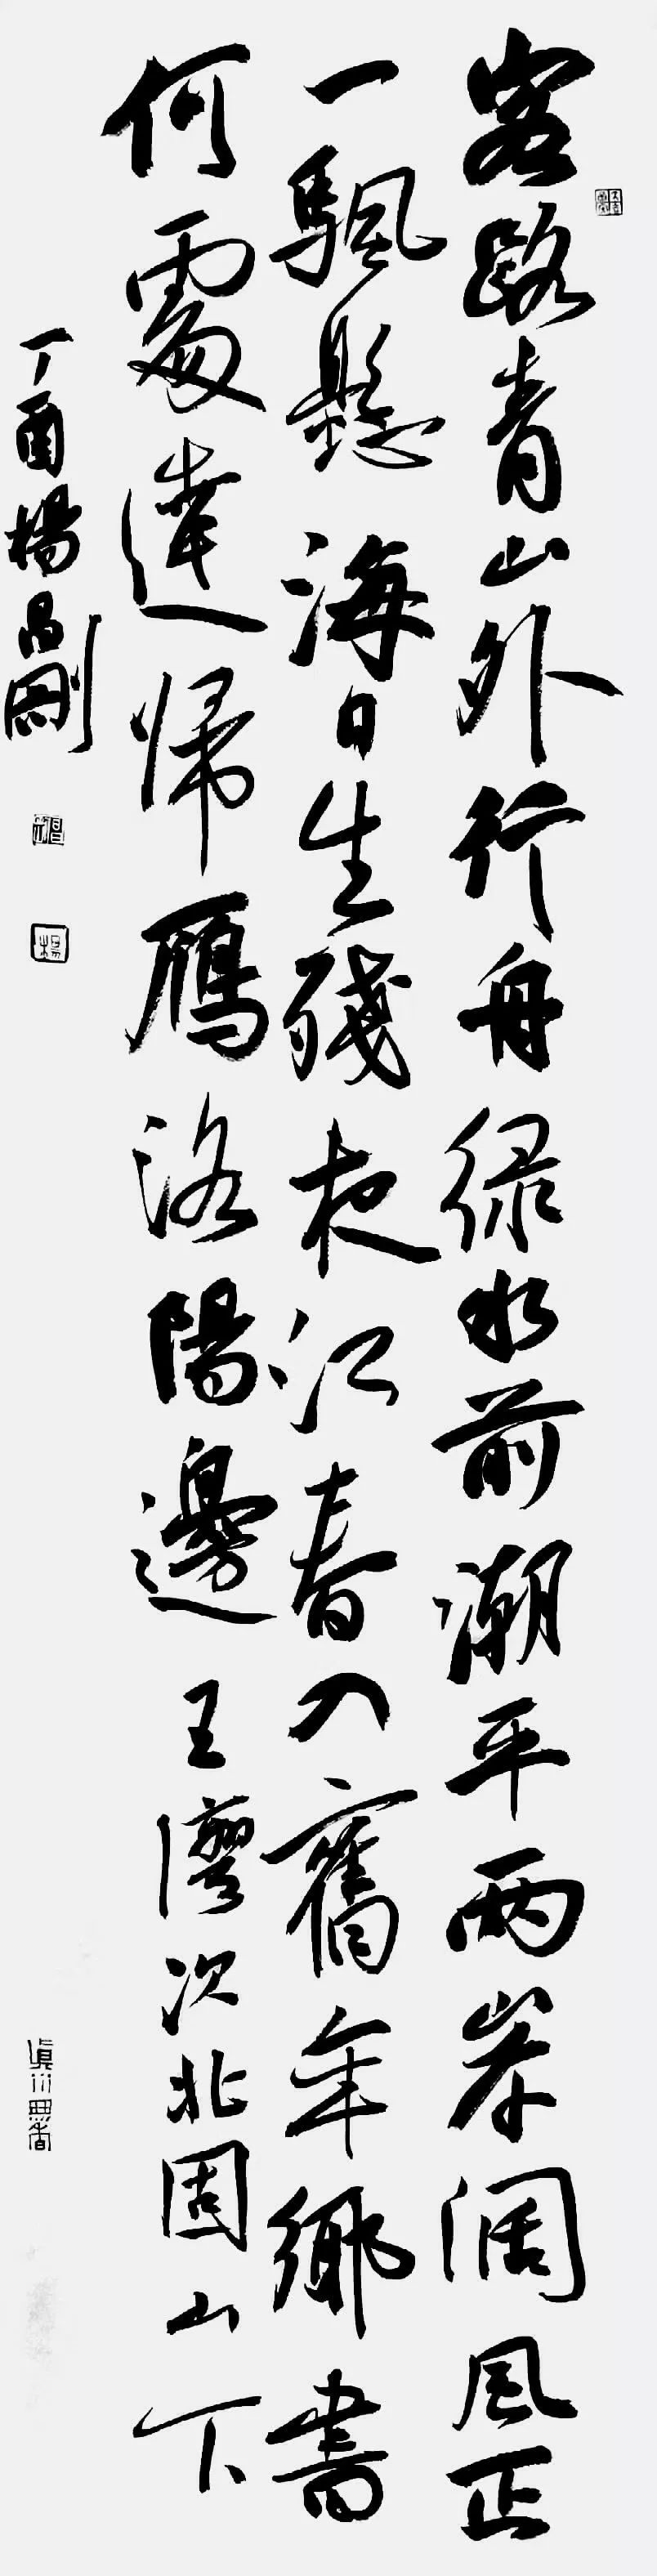 客路青山外行舟绿水前潮平两岸阔风正
一颿懸海日生殘夜江春入舊年鄉書
何處達帰鴈洛陽邊王灣次北固山下
丁酉楊昌剛
楊